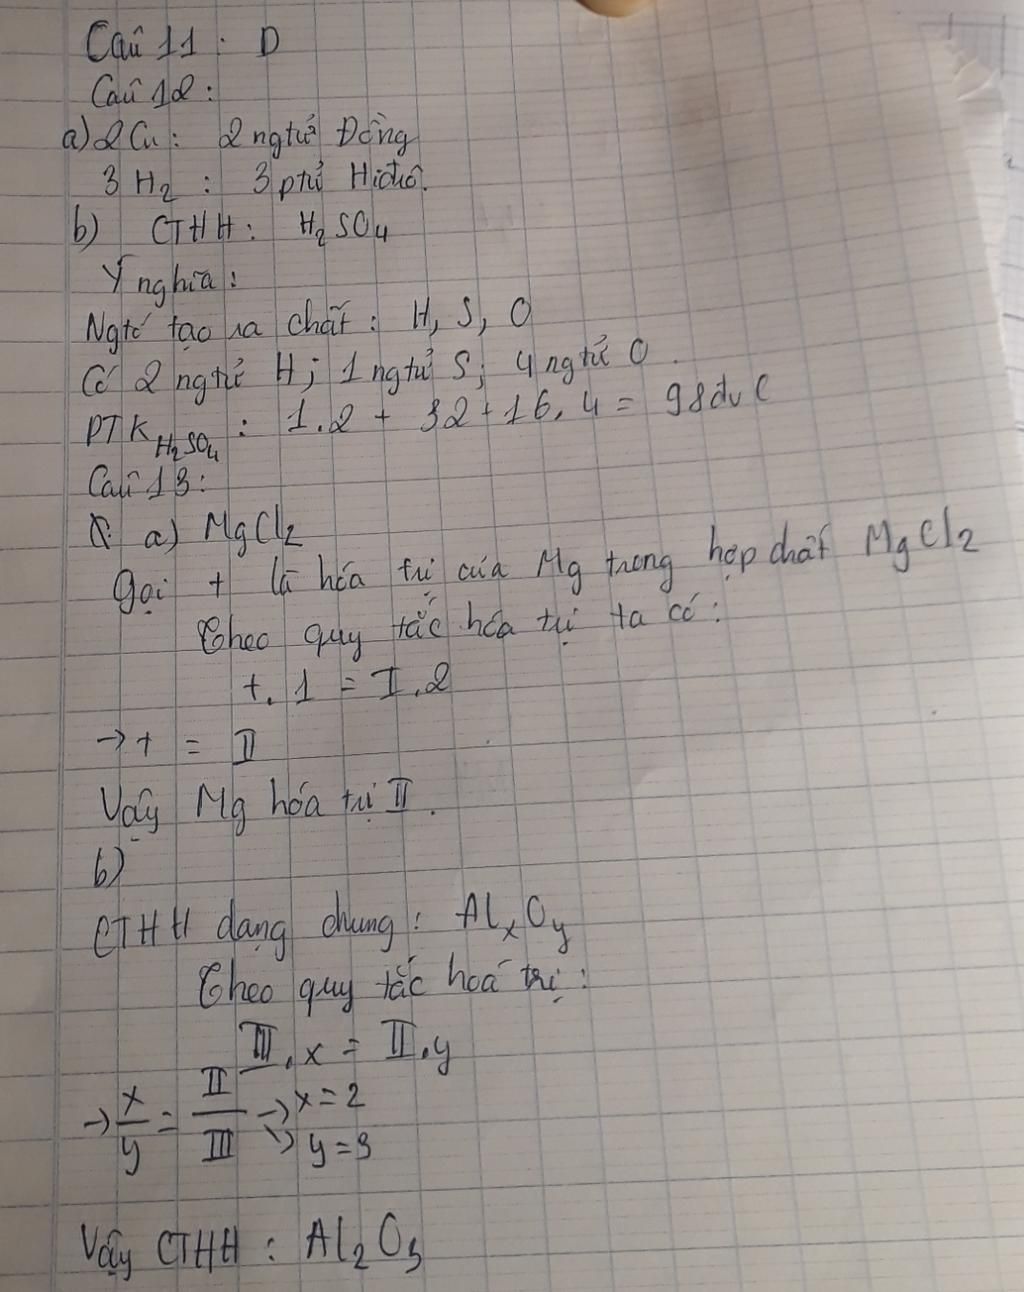 Câu 11 : D
Câu 12 :
a) 2Cu : 2 ngtử Đồng
3 H₂ : 3 ptử Hiđrô.
b) CTHH : H₂SO₄
Ý nghĩa :
Ngtố tạo ra chất : H, S, O
Có 2 ngtử H ; 1 ngtử S ; 4 ngtử O .
PTK H₂SO₄ : 1.2 + 32 + 16.4 = 98 đvC
Câu 13 :
a) MgCl₂
Gọi t là hóa trị của Mg trong hợp chất MgCl₂
Theo quy tắc hóa trị ta có :
t. 1 = I . 2
→ t = II
Vậy Mg hóa trị II .
b)
CTHH dạng chung : AlₓOᵧ
Theo quy tắc hoá trị :
III . x = II . y
→ x/y = II/III → x = 2
→ y = 3
Vậy CTHH : Al₂O₃